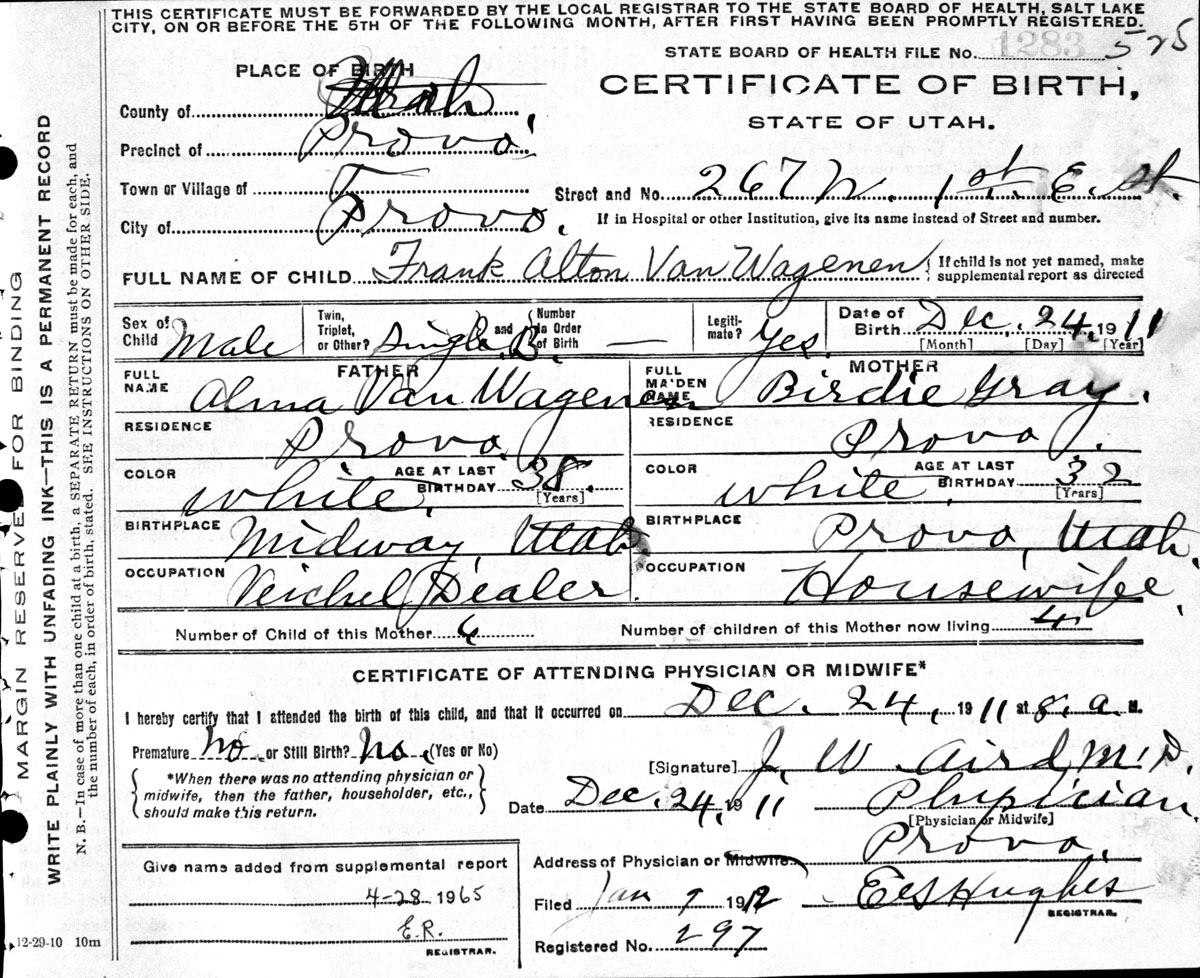 THIS CERTIFICATE MUST BE FORWARDED BY THE LOCAL REGISTRAR TO THE STATE BOARD OF HEALTH, SALT LAKE
CITY, ON OR BEFORE THE 5TH OF THE FOLLOWING MONTH, AFTER FIRST HAVING BEEN PROMPTLY REGISTERED.
STATE BOARD OF HEALTH FILE No. 1283 525
PLACE OF BIRTH
CERTIFICATE OF BIRTH,
STATE OF UTAH.
County of Utah
Precinct of Provo.
Town or Village of
Street and No. 267 N. 1st. E. st.
City of Provo.
If in Hospital or other Institution, give its name instead of Street and number.
FULL NAME OF CHILD Frank Alton Van Wagenen { If child is not yet named, make supplemental report as directed
Sex of Child Male
Twin, Triplet, or Other? Single. and Number in Order of Birth —
Legitimate? Yes.
Date of Birth Dec. 24, 1911
[Month] [Day] [Year]
FATHER
FULL NAME Alma Van Wagenen
MOTHER
FULL MAIDEN NAME Birdie Gray.
RESIDENCE Provo.
RESIDENCE Provo.
COLOR white. AGE AT LAST BIRTHDAY 38. [Years]
COLOR white. AGE AT LAST BIRTHDAY 32 [Years]
BIRTHPLACE Midway, Utah
BIRTHPLACE Provo, Utah.
OCCUPATION Veichel Dealer.
OCCUPATION Housewife.
Number of Child of this Mother 6
Number of children of this Mother now living 4
CERTIFICATE OF ATTENDING PHYSICIAN OR MIDWIFE*
I hereby certify that I attended the birth of this child, and that it occurred on Dec. 24, 1911 at 8. a. M.
Premature No. or Still Birth? No. (Yes or No)
{ *When there was no attending physician or midwife, then the father, householder, etc., should make this return. }
[Signature] J. W. Aird, M.D.
Date Dec. 24, 1911
Physician.
[Physician or Midwife]
Address of Physician or Midwife Provo.
Give name added from supplemental report
4-28 1965
E.R.
REGISTRAR.
Filed Jan 7 1912
REGISTRAR.
Registered No. 297
12-29-10 10m
MARGIN RESERVED FOR BINDING
WRITE PLAINLY WITH UNFADING INK—THIS IS A PERMANENT RECORD
N. B.—In case of more than one child at a birth, a SEPARATE RETURN must be made for each, and
the number of each, in order of birth, stated. SEE INSTRUCTIONS ON OTHER SIDE.